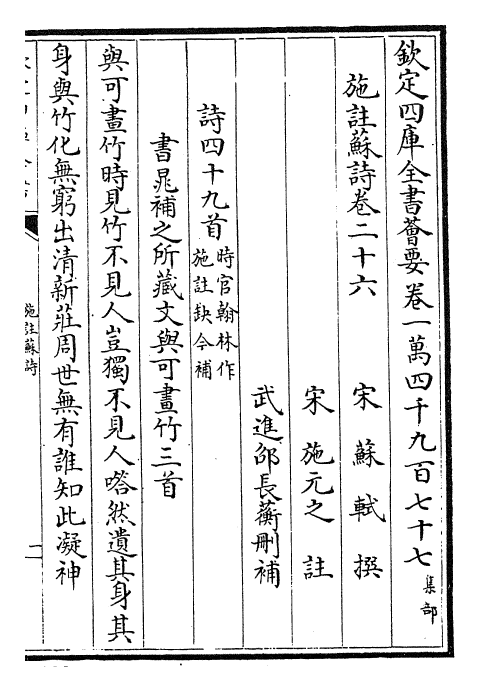 欽定四庫全書薈要卷一萬四千九百七十七 集部
施註蘇詩卷二十六 宋 蘇軾 撰
宋 施元之 註
武進邵長蘅刪補
詩四十九首 時官翰林作
施註缺今補
書晁補之所藏文與可畫竹三首
與可畫竹時見竹不見人豈獨不見人嗒然遺其身其
身與竹化無窮出清新莊周世無有誰知此凝神
施註蘇詩